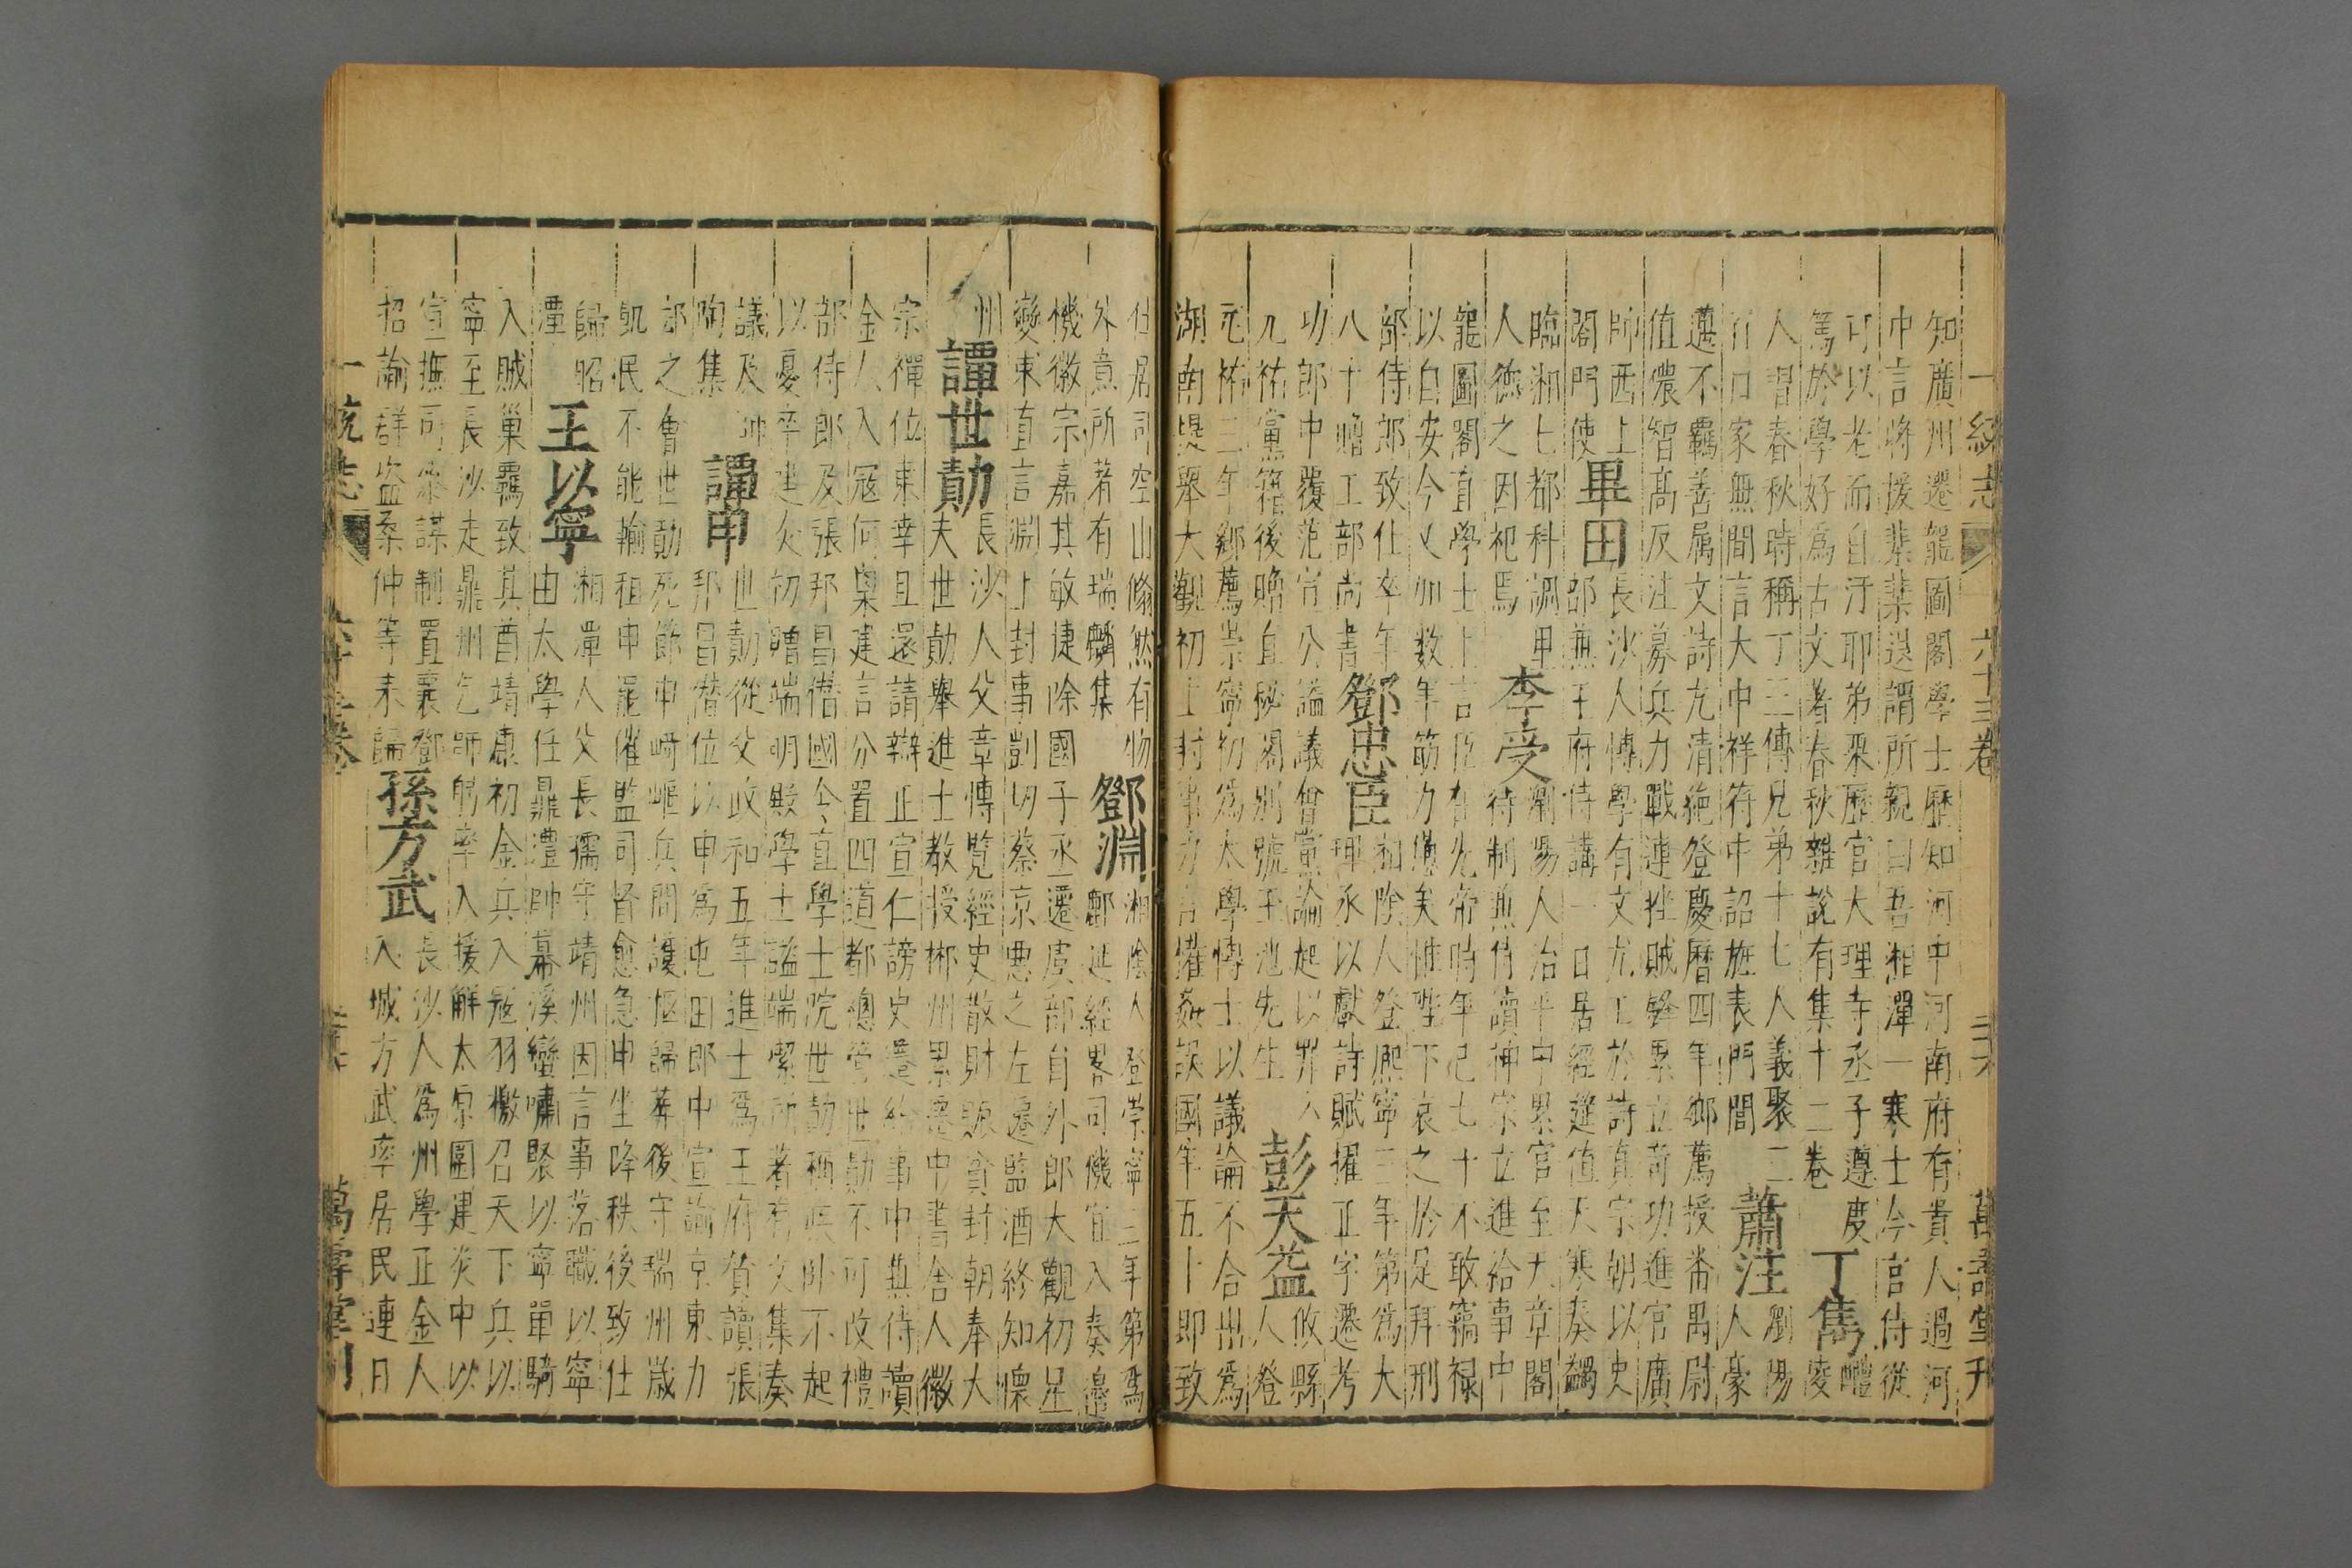 一統志 六十三卷 萬壽堂刊
知廣州遷龍圖閣學士歷知河中河南府有貴人過河
中言將援葉葉送謂所親曰吾湘潭一寒士今官侍從
可以老而自汙耶弟琹歷官大理寺丞子遵度 丁雋 醴陵
篤於學好為古文著春秋雜說有集十二卷
人習春秋時稱丁三傳兄弟十七人義聚三
百口家無間言大中祥符中詔旌表門閭 蕭注 瀏陽人豪
邁不羈善属文詩尤清絶登慶曆四年鄉薦授番禺尉
值儂智高反注募兵力戰連挫賊鋒累立竒功進官廣
師西上閤門使 畢田 長沙人博學有文尤工於詩真宗朝以史
部無王府侍講一日居經筵值天寒奏蠲
臨湘七都科調 李受 瀏陽人治平中累官至天章閣
人德之因祀焉 待制無侍讀神宗立進給事中
龍圖閣直學士上言臣在先帝時年已七十不敢竊禄
以自安今又加数年筋力憊矣惟陛下哀之於足拜刑
部侍郎致仕卒年八十贈工部尚書 鄧忠臣 湘陰人登熈寧三年第為大
理丞以獻詩賦擢正字遷考
功郎中覆范宣公謚議會黨論起以罪
元祐黨籍後贈直秘閣别號玉池先生 彭天益 攸縣人登
元祐二年鄉薦崇寧初為太學博士以議論不合出為
湖南提舉大觀初上封事力言權姦誤國年五十即致
仕居司空山翛然有物
外意所著有瑞麟集 鄧淵 湘陰人登崇寧三年第爲
鄜延經畧司機宜入奏邊
機徽宗嘉其敏捷除國子丞遷虞部員外郎大觀初星
變東直言淵上封事剴切蔡京惡之左遷監酒終知懷
州 譚世勣 長沙人父章博覽經史散財賑貧封朝奉大
夫世勣舉進士教授郴州累遷中書舍人徽
宗禪位東幸且還請辯正宣仁謗史遷給事中無侍讀
金人入寇何㮚建言分置四道都總管世勣不可改禮
部侍郎及張邦昌僭國令直學士院世勣稱疾卧不起
以憂卒建炎初贈端明殿學士謚端潔所著有文集奏
議及陶集 譚申 世勣從父政和五年進士爲王府賛讀張
邦昌僭位以申為屯田郎中宣諭京東力
却之會世勣死節申崎嶇兵間護柩歸葬後守瑞州歲
飢民不能輸租申罷催監司督愈急申坐降秩後致仕
歸 王以寧 湘潭人父長孺守靖州因言事落職以寧
由太學任鼎澧帥幕溪蠻嘯聚以寧單騎
入賊巢羈致其酋靖康初金兵入寇羽檄召天下兵以
寧至長沙走鼎州乞師躬率入援解太原圍建炎中以
宣撫司參謀制置襄鄧 孫方武 長沙人為州學正金人
招諭群盗桑仲等来歸 入城方武率居民連日
一統志 六十三卷 萬壽堂刊